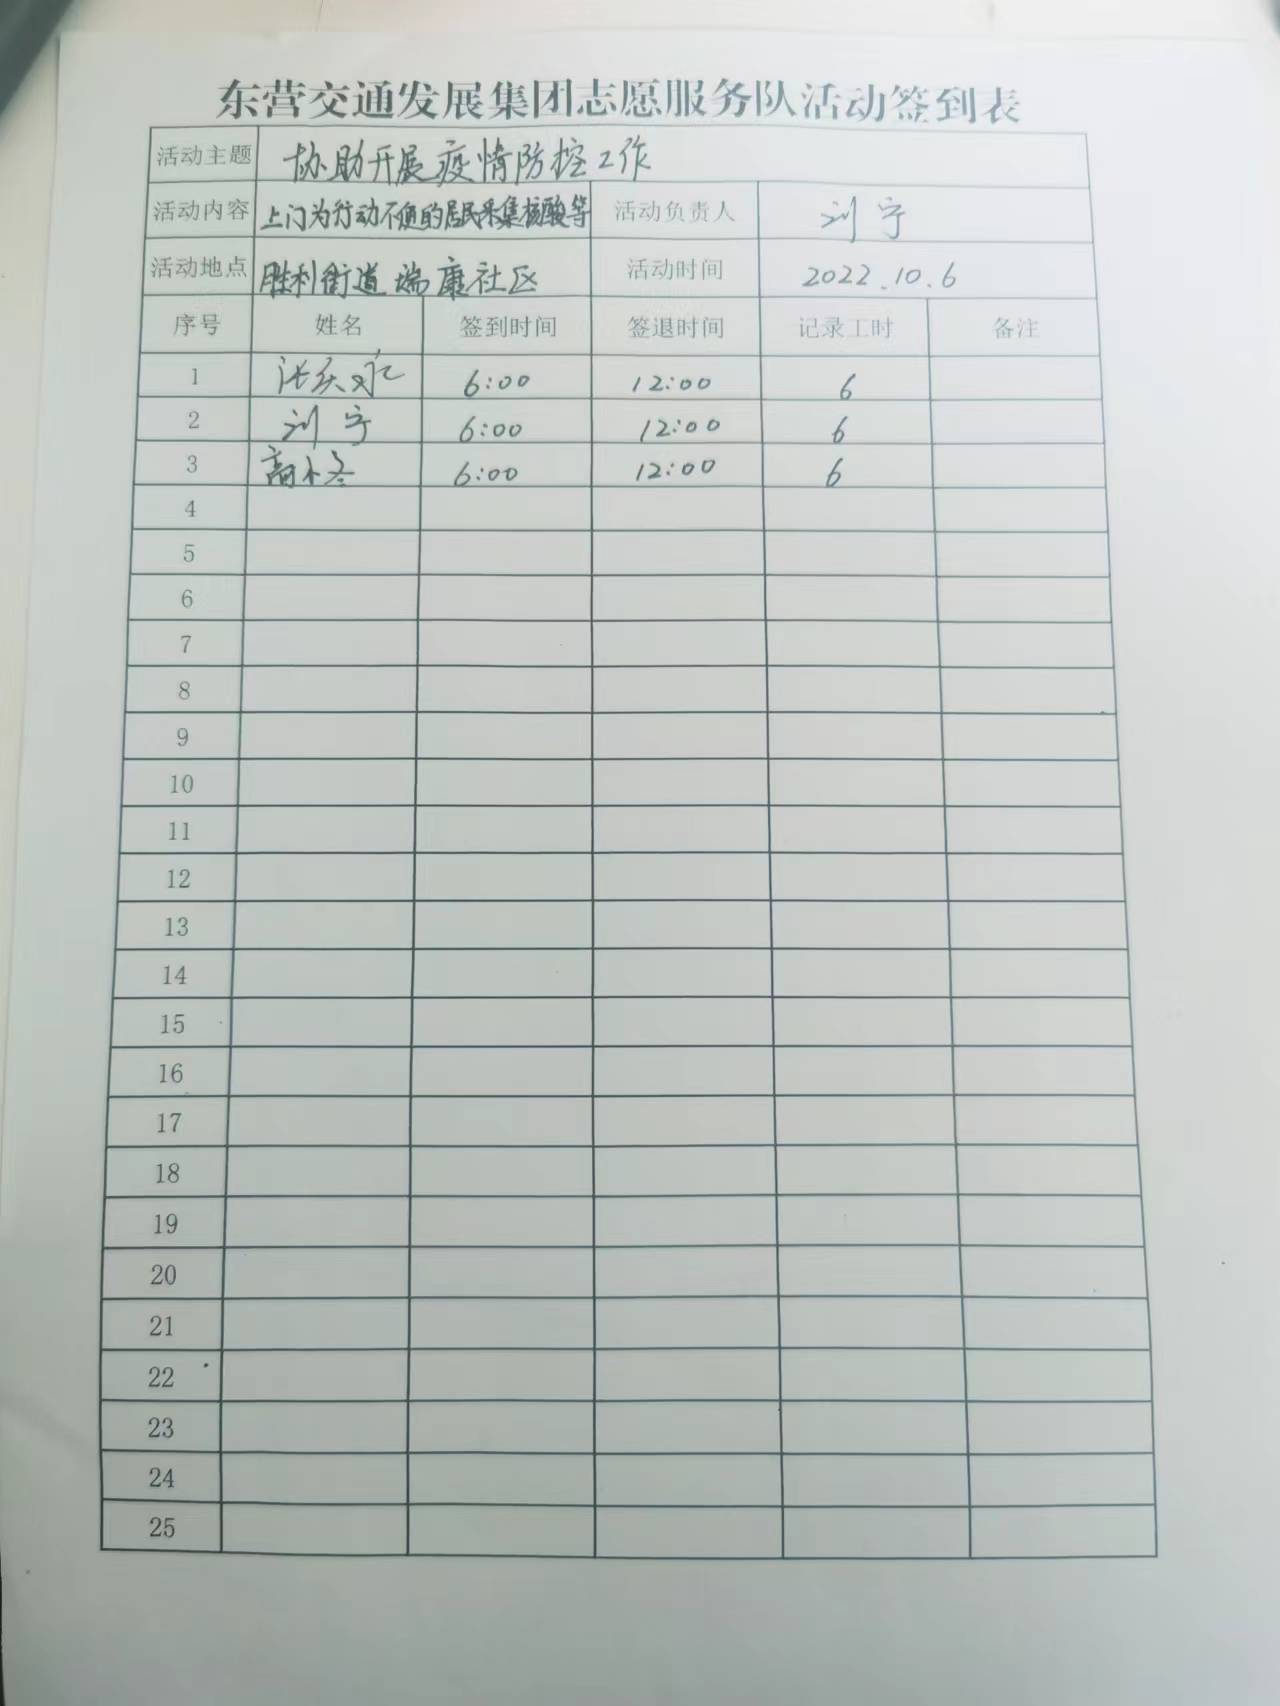 东营交通发展集团志愿服务队活动签到表
活动主题 协助开展疫情防控工作
活动内容 上门为行动不便的居民采集核酸等 活动负责人 刘宁
活动地点 胜利街道瑞康社区 活动时间 2022.10.6
序号 姓名 签到时间 签退时间 记录工时 备注
1 张庆永 6:00 12:00 6
2 刘宁 6:00 12:00 6
3 高小冬 6:00 12:00 6
4
5
6
7
8
9
10
11
12
13
14
15
16
17
18
19
20
21
22
23
24
25